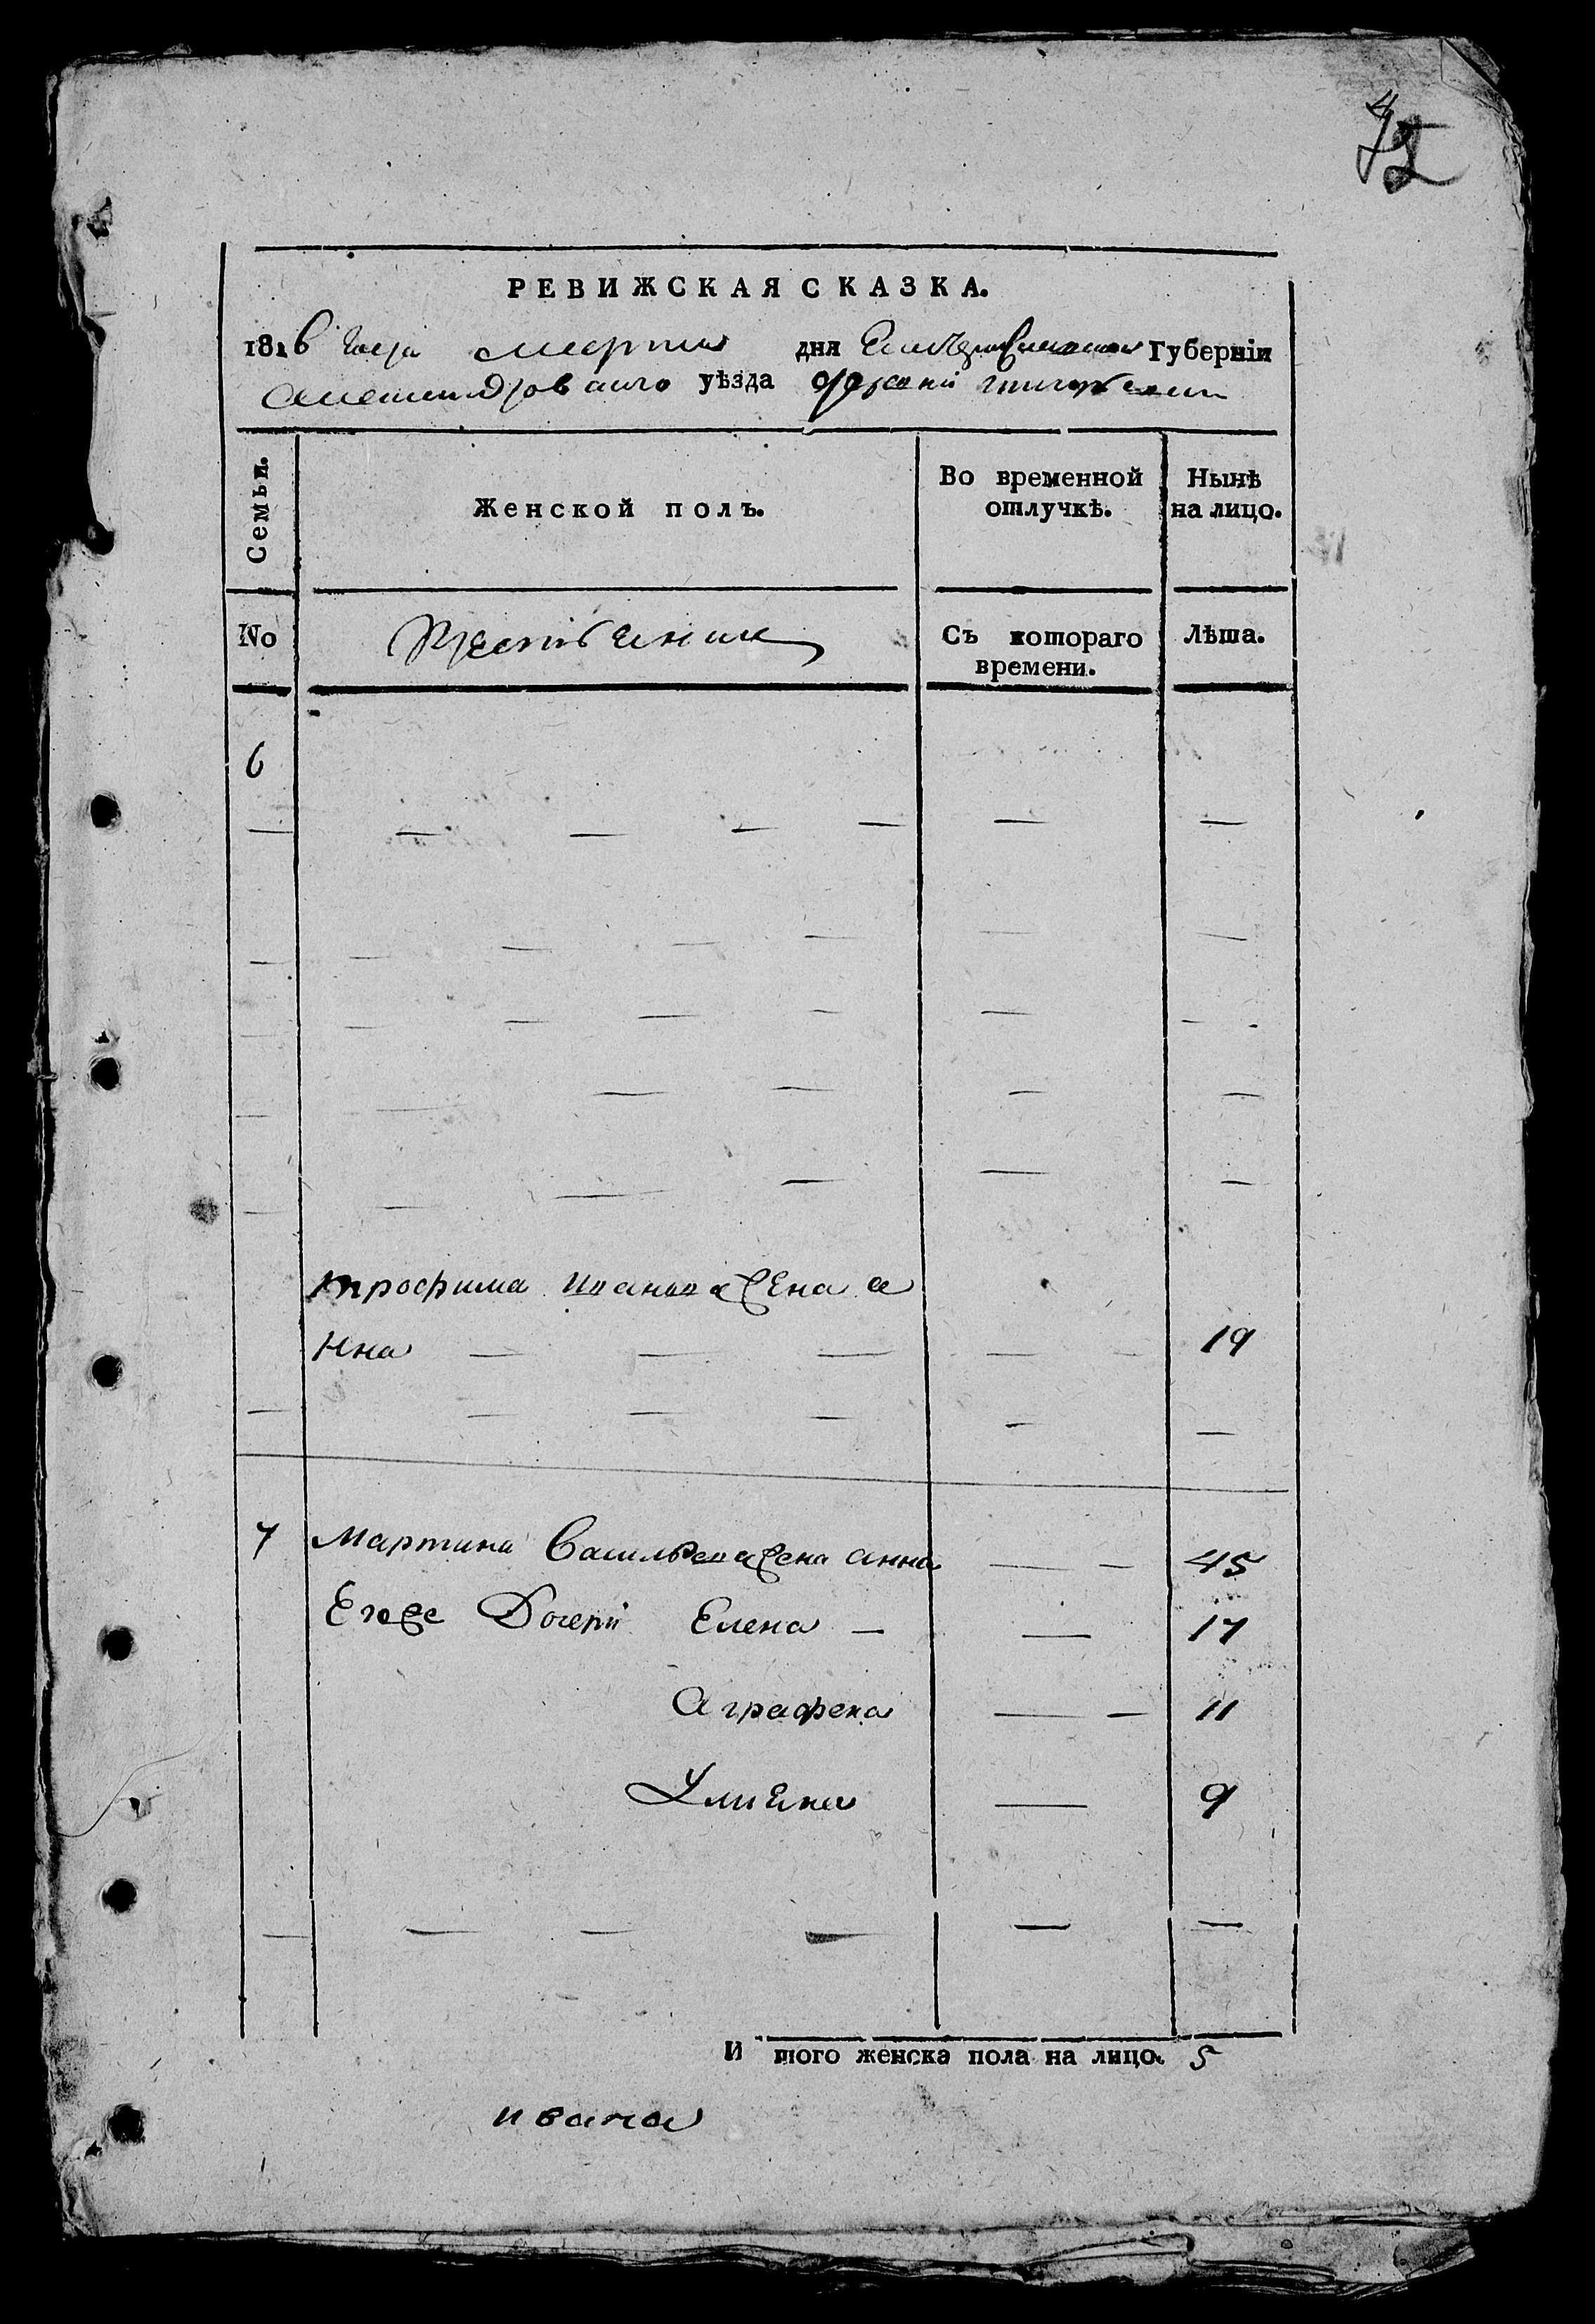 42
РЕВИЖСКАЯ СКАЗКА.
1816 года марта дня Екатеринославской Губерніи
Александровскаго уѣзда
Семьи.
Женской полъ.
Во временной
отлучкѣ.
Нынѣ
на лицо.
No
Съ котораго
времени.
Лѣта.
6
трофима иванова жена а
нна 19
7 мартина васильева жена анна 45
Егоже дочери Елена 17
аграфена 11
Улиена 9
И того женска пола на лицо. 5
ивана